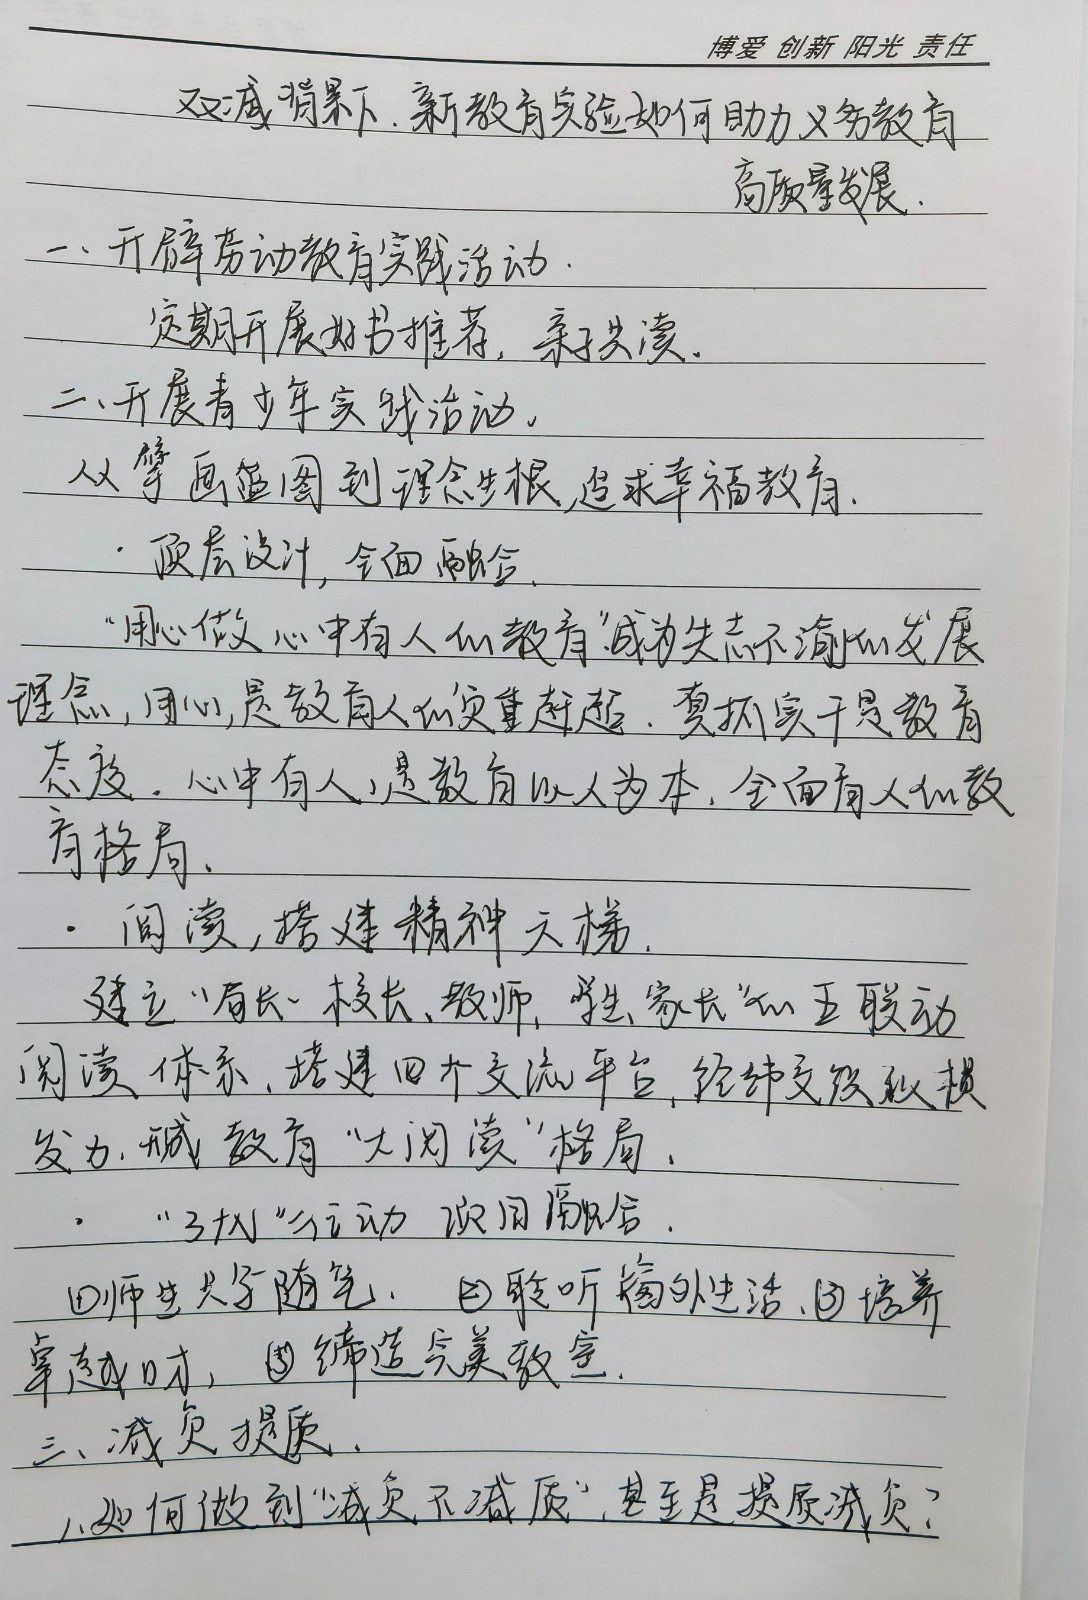 博爱 创新 阳光 责任
双减背景下.新教育实验如何助力义务教育
高质量发展.
一、开辟劳动教育实践活动.
定期开展好书推荐,亲子共读.
二、开展青少年实践活动、
从擘画蓝图到理念生根,追求幸福教育.
·顶层设计,全面融合.
"用心做心中有人的教育"成为矢志不渝的发展
理念,用心,是教育人的负重赶超.真抓实干是教育
态度.心中有人,是教育以人为本,全面育人的教
育格局.
·阅读,搭建精神天梯.
建立"局长、校长、教师、学生、家长"的五联动
阅读体系、搭建四个交流平台,经纬交织纵横
发力、形成教育"大阅读"格局.
·"3+N"行动 项目融合.
①师生共写随笔、②聆听窗外生活、③培养
卓越口才,④缔造完美教室.
三、减负提质.
1、如何做到"减负不减质",甚至是提质减负?